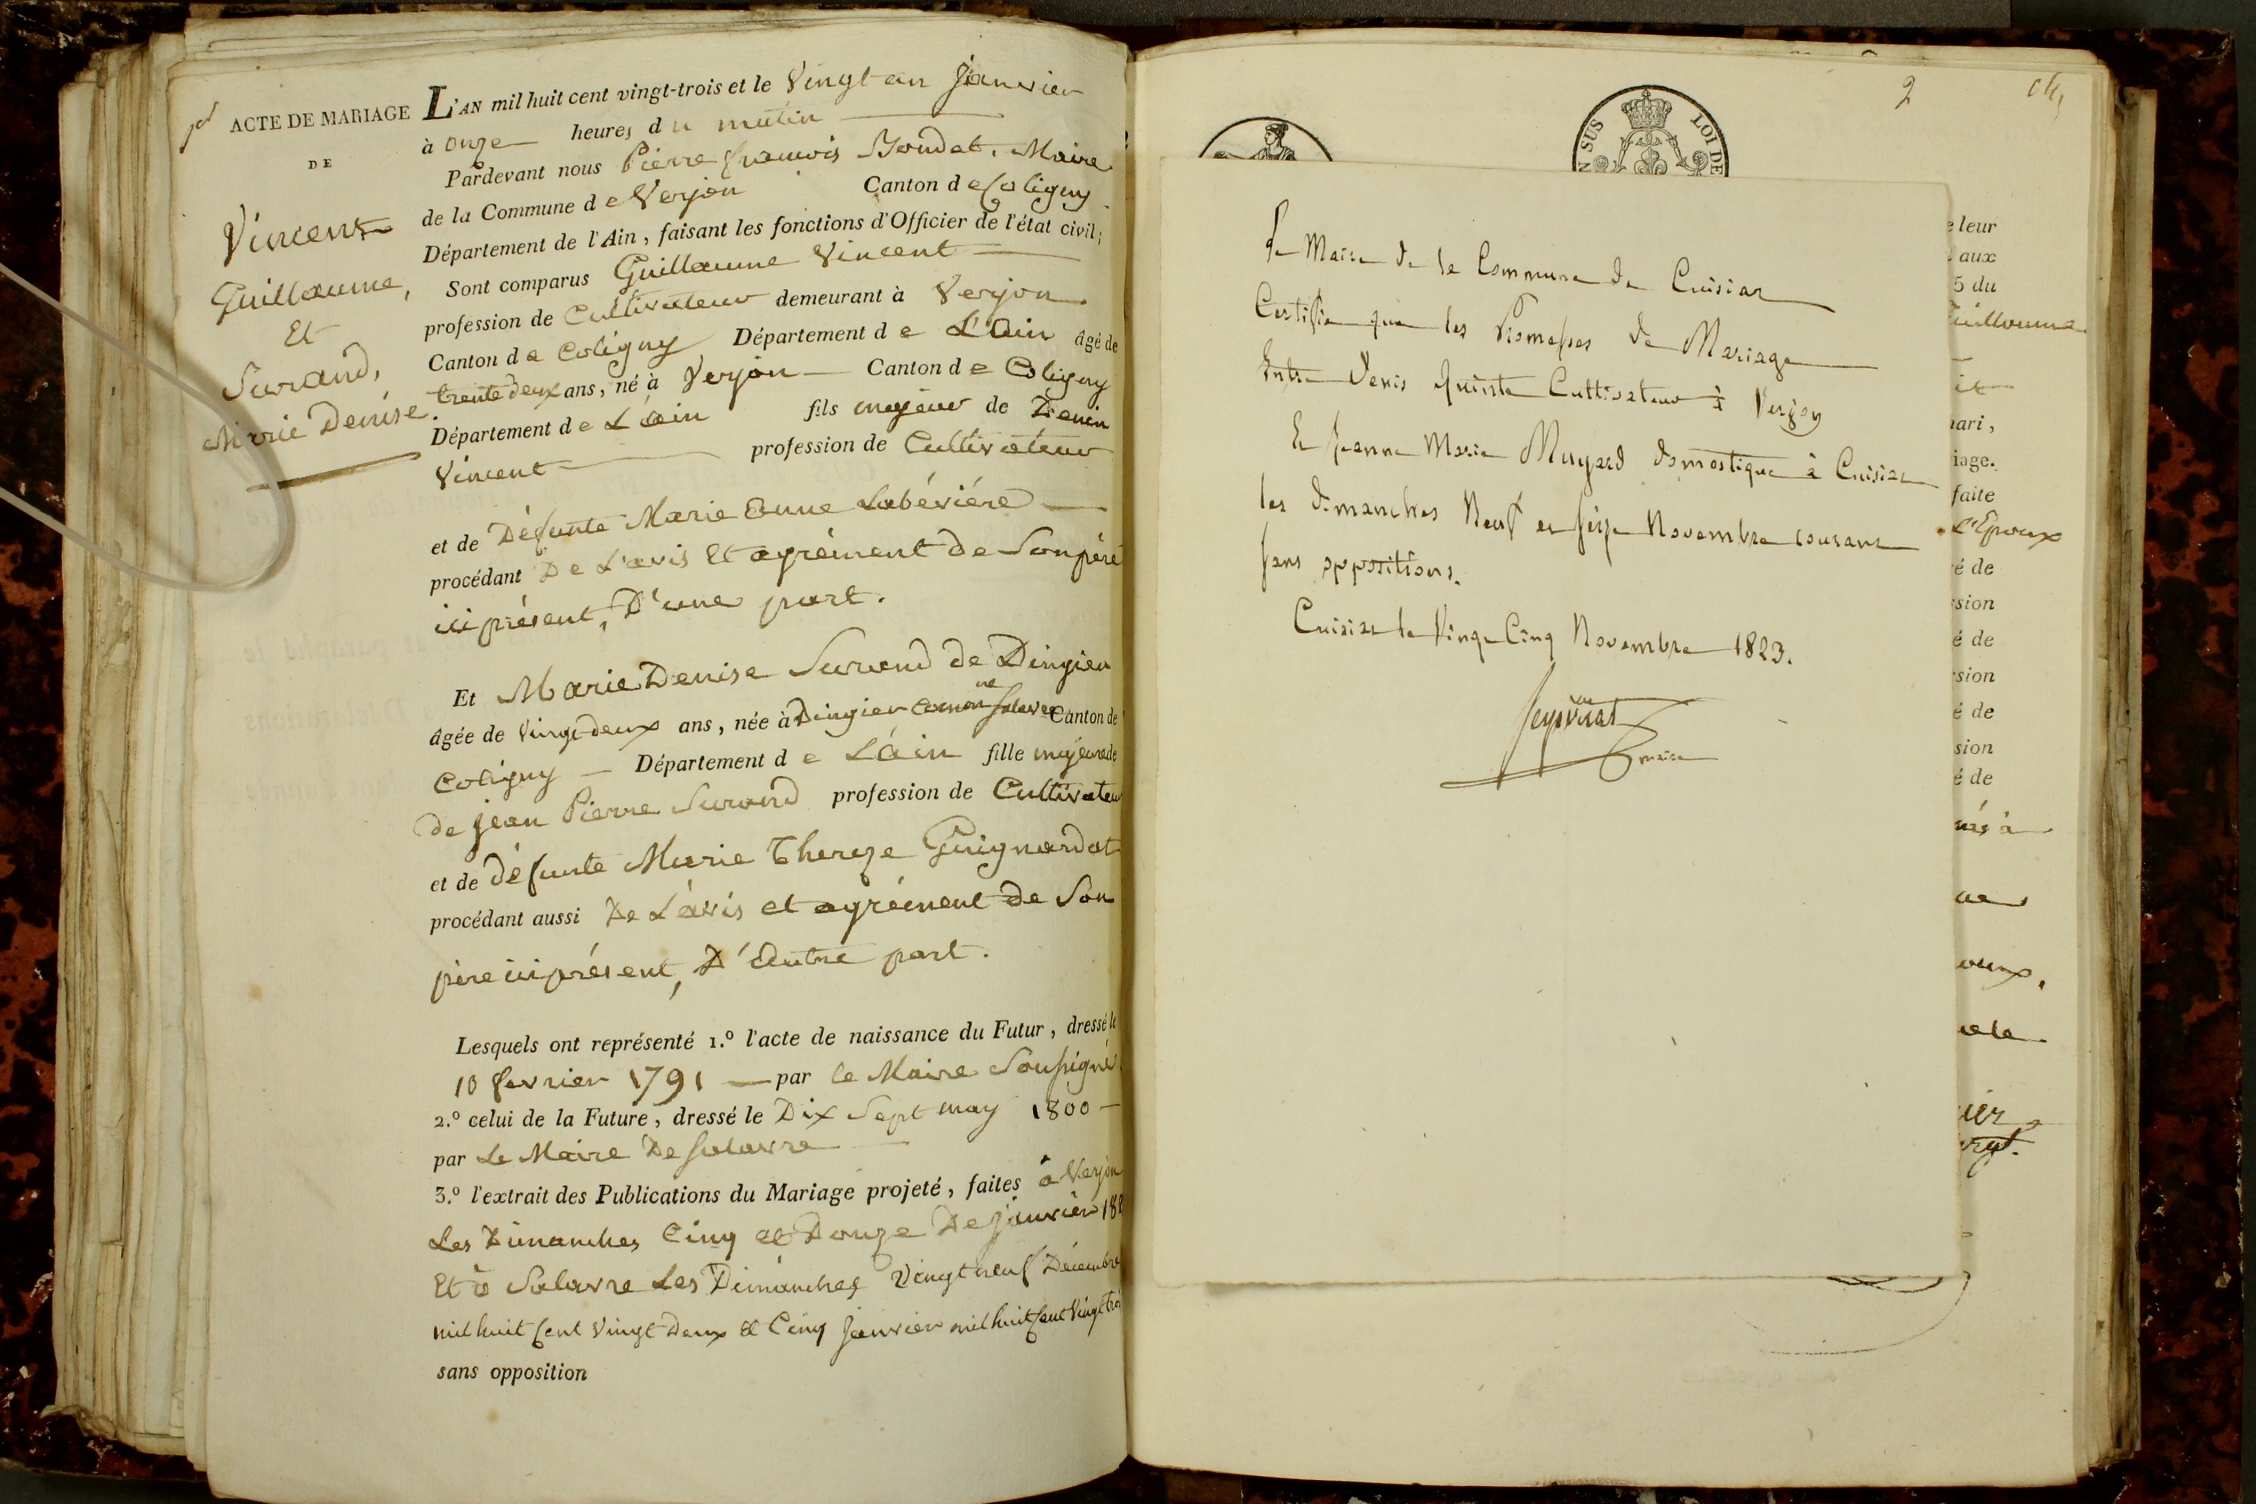 ACTE DE MARIAGE
DE
Vincent
Guillaume,
Et
Surand,
Marie Denise.
L'AN mil huit cent vingt-trois et le Vingt un janvier
à onze heures du matin
Pardevant nous Pierre françois Maire
de la Commune de Verjon Canton de Coligny
Département de l'Ain, faisant les fonctions d'Officier de l'état civil;
Sont comparus Guillaume Vincent
profession de Cultivateur demeurant à Verjon
Canton de Coligny Département de L'Ain âgé de
trente deux ans, né à Verjon Canton de Coligny
Département de L'ain fils majeur de
Vincent profession de Cultivateur
et de Défunte Marie Anne Labéviére
procédant De L'avis Et agrément de Son pére
ici présent, D'une part.
Et Marie Denise Surand de Dingier
âgée de Vingt-deux ans, née à Dingier commune Salavre Canton de
Coligny Département de L'ain fille majeure de
de jean Pierre Surand profession de Cultivateur
et de défunte Marie Thereze Guignardat
procédant aussi De L'avis et agrément de Son
père ici présent, D'Autre part.
Lesquels ont représenté 1.º l'acte de naissance du Futur, dressé le
10 fevrier 1791 par le Maire Soussigné
2.º celui de la Future, dressé le Dix Sept may 1800
par Le Maire De Salavre
3.º l'extrait des Publications du Mariage projeté, faites à Verjon
Les Dimanches Cinq et Douze De janvier 182
Et à Salavre Les Dimanches Vingt neuf Décembre
mil huit Cent Vingt Deux et Cinq janvier mil huit Cent Vingt trois
sans opposition
2
N SUS
LOI DE
Le Maire de la Commune de Cuisiat
Certifie que les Promesses de Mariage
Entre Denis Quinte Cultivateur à Verjon
Et Jeanne Marie Muyard domestique à Cuisiat
les dimanches Neuf et seize Novembre courant
sans oppositions.
Cuisiat le Vingt Cinq Novembre 1823.
maire
e leur
aux
5 du
uillaume
it
ari,
iage.
faite
L'Epoux
é de
sion
é de
sion
é de
sion
é de